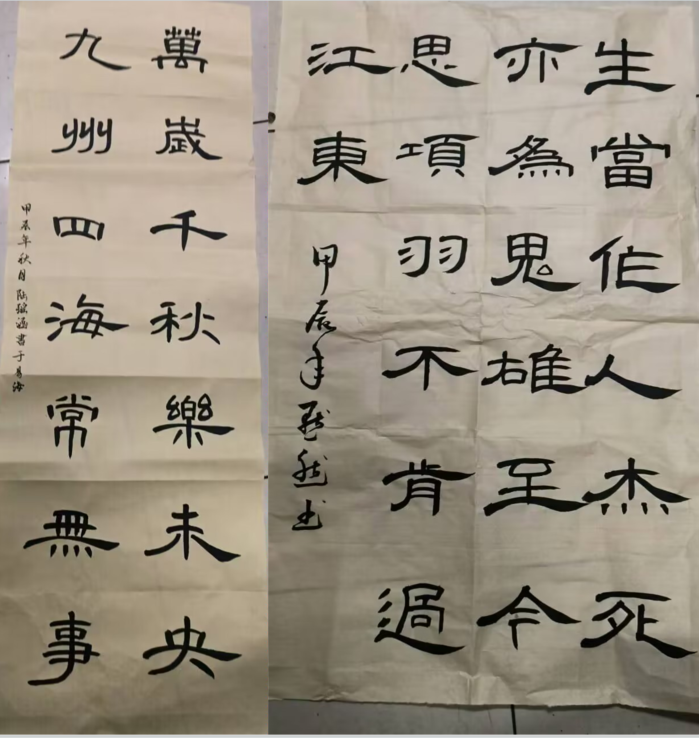 萬歲千秋樂未央
九州四海常無事
甲辰年秋月陆
書于
生當作人杰死
亦為鬼雄至今
思項羽不肯過
江東
甲辰年